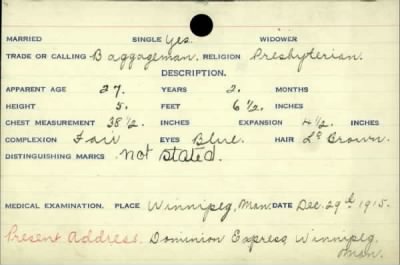 MARRIED SINGLE Yes. WIDOWER
TRADE OR CALLING Baggageman. RELIGION Presbyterian.
DESCRIPTION.
APPARENT AGE 27. YEARS 2. MONTHS
HEIGHT 5. FEET 6 1/2. INCHES
CHEST MEASUREMENT 38 1/2 INCHES EXPANSION 4 1/2. INCHES
COMPLEXION Fair EYES Blue. HAIR Lt Brown.
DISTINGUISHING MARKS not stated.
MEDICAL EXAMINATION. PLACE Winnipeg, Man. DATE Dec. 29th 1915.
Present Address. Dominion Express, Winnipeg.
Man.